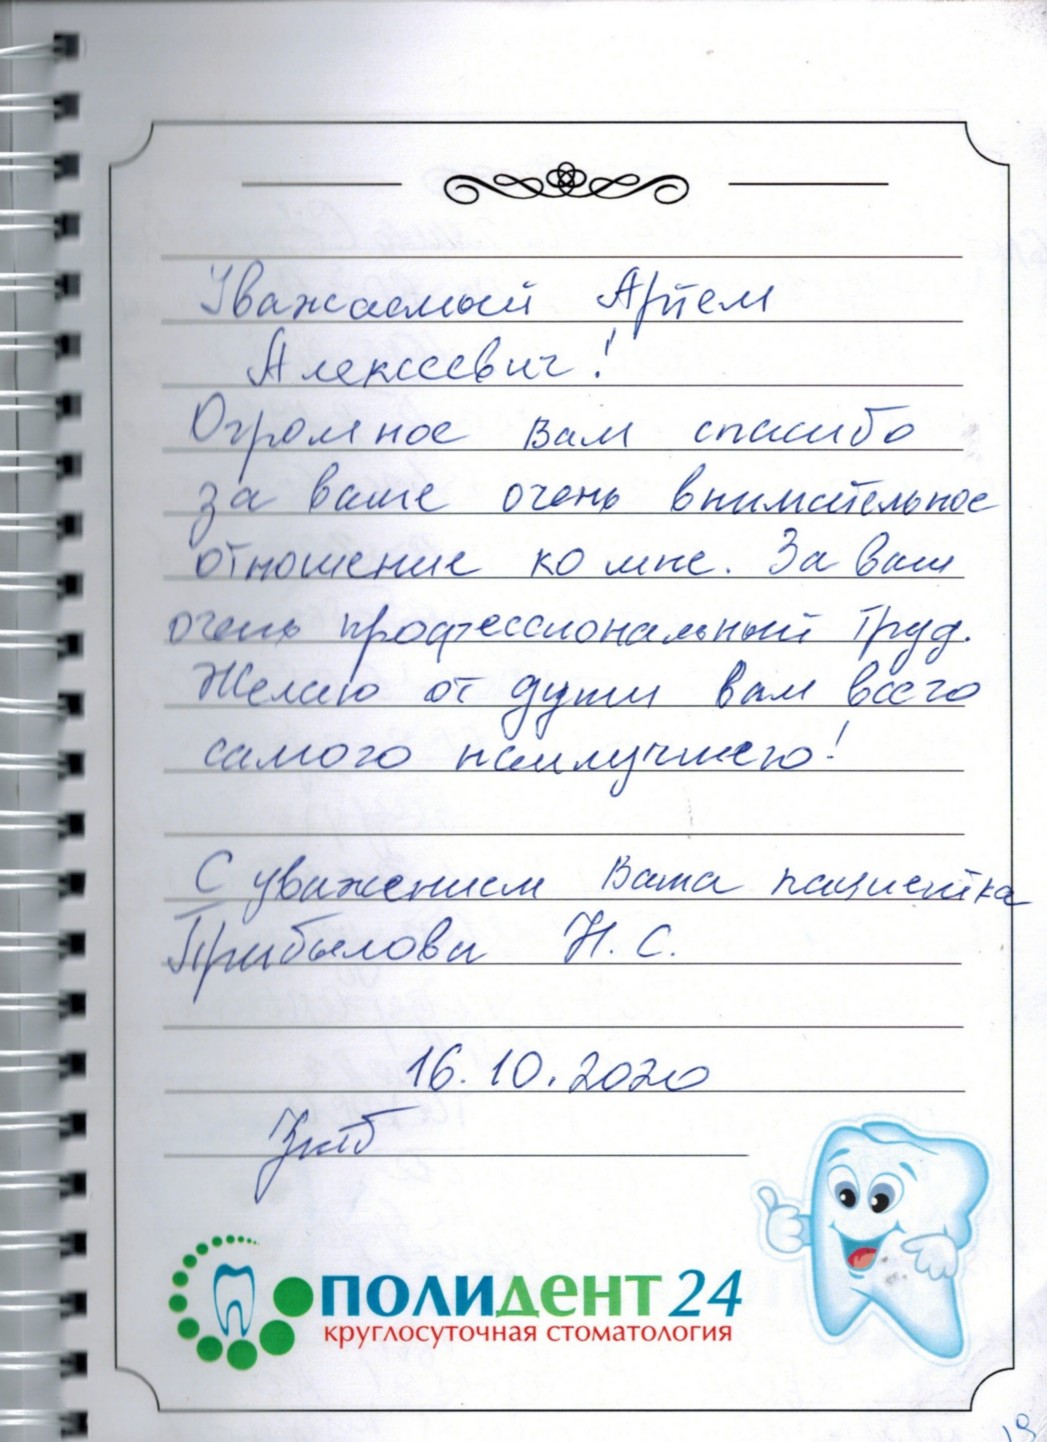 Уважаемый Артем
Алексеевич!
Огромное Вам спасибо
за ваше очень внимательное
отношение ко мне. За ваш
очень профессиональный труд.
Желаю от души вам всего
самого наилучшего!
С уважением Ваша пациентка
Прибылова Н. С.
16.10.2020
ПОЛИДЕНТ 24
круглосуточная стоматология